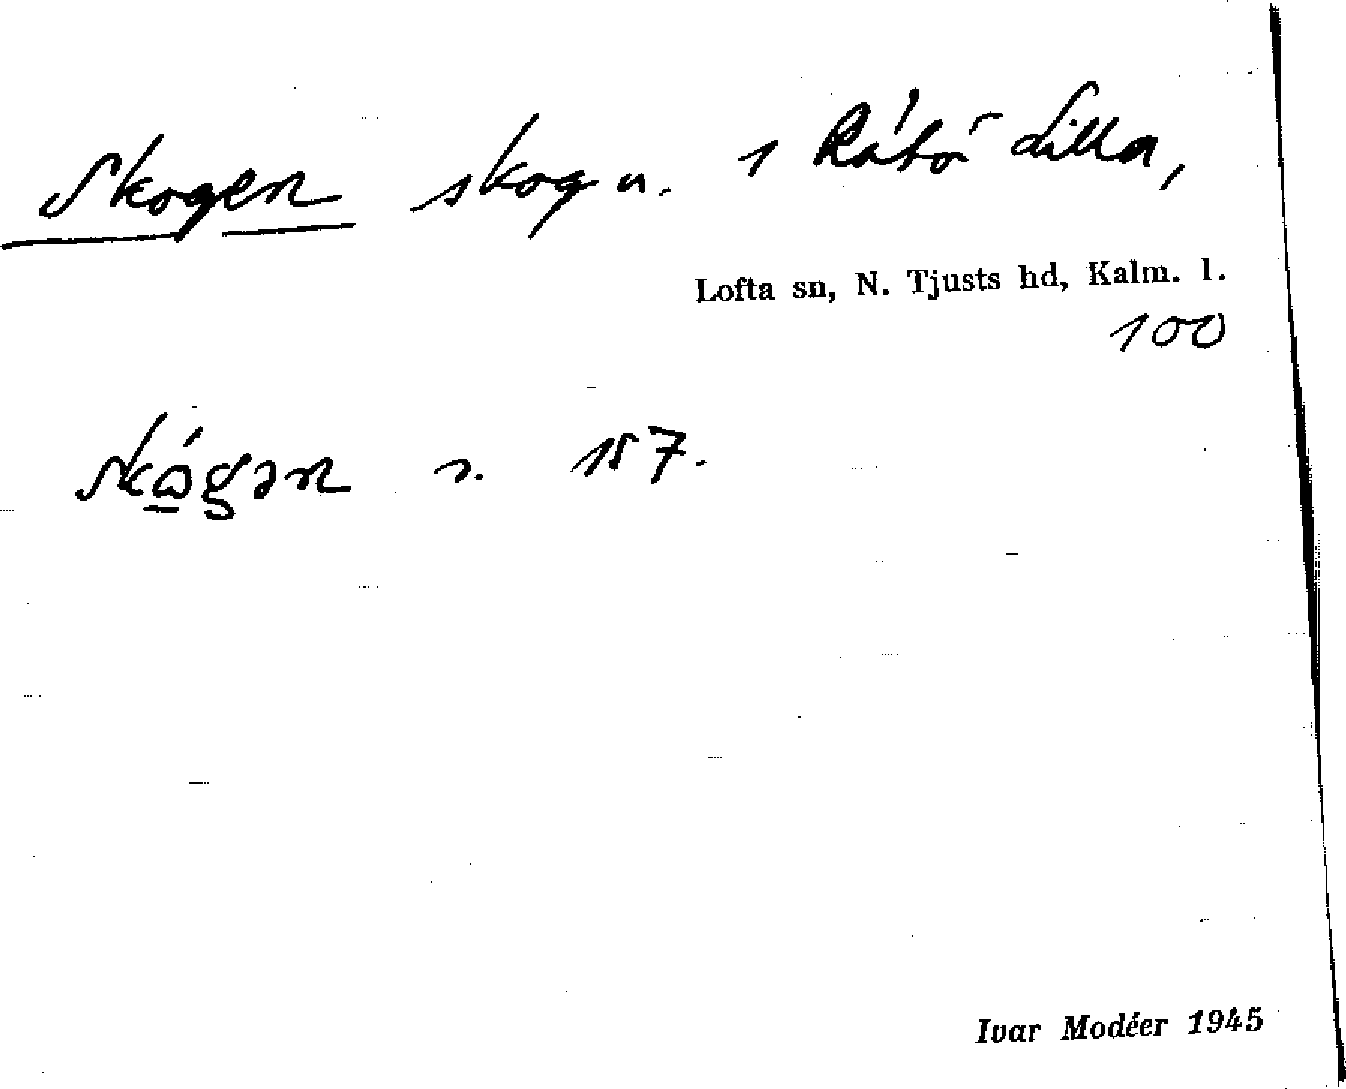 Skogen skog u. 1 Råbö Lilla,
Lofta sn, N. Tjusts hd, Kalm. l.
100
157.
Ivar Modéer 1945